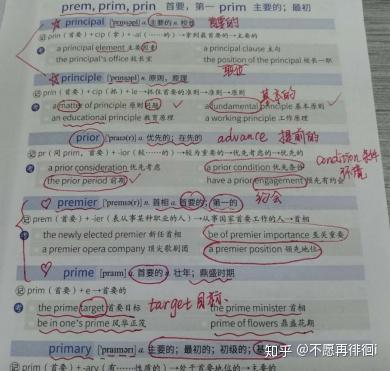 prem, prim, prin 首要，第一 prim 主要的；最初
principal a. 主要的 n. 校长 首要的
prin (首要) + cip (拿) + -al (……的)→拿到最首要的→主要的
a principal element 主要因素 a principal clause 主句
the principal's office 校长室 the position of the principal 校长一职
职位
principle n. 原则，原理
基本的
a matter of principle 原则问题 a fundamental principle 基本原则
an educational principle 教育原理 a working principle 工作原理
prior a. 优先的；在先的 advance 提前的
condition 条件
环境
a prior consideration 优先考虑 a prior condition 优先条件
the prior period 前期 have a prior engagement 预先有约会
约会
premier n. 首相 a. 首要的；第一的
prem (首要) + -ier (表从事某种职业的人)→从事国家首要工作的人→首相
the newly elected premier 新任首相 be of premier importance 至关重要
a premier opera company 顶尖歌剧团 a premier position 领先地位
prime [praɪm] a. 首要的 n. 壮年；鼎盛时期
prim (首要) + e→首要的
the prime target 首要目标 target 目标 the prime minister 首相
be in one's prime 风华正茂 prime of flowers 鼎盛花期
primary a. 主要的；最初的；初级的；
prim (首要) + -ary (有……性质的)→处于首要地位的→主要的
知乎 @不愿再徘徊i